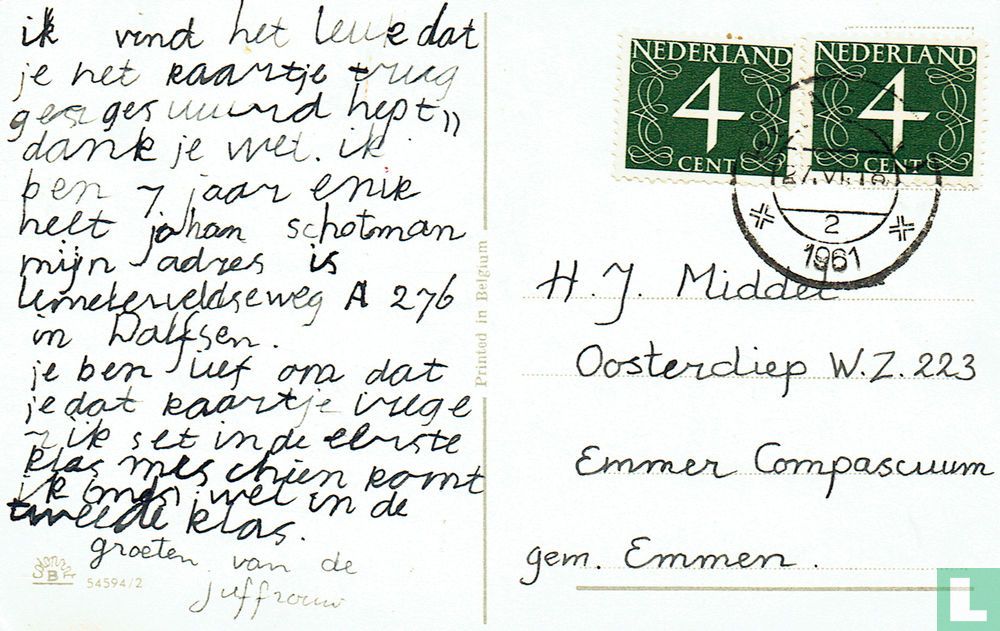 ik vind het leuk dat
je het kaartje trug
ges gesuuurd hept,,
dank je wel. ik
ben 7 jaar en ik
heet johan schotman
mijn adres is
Lemelerveldseweg A 276
in Dalfsen.
je ben lief om dat
je dat kaartje
ik set in de eerste
klas mes chien komt
ik wel in de
tweede klas.
groeten van de
juffrouw
54594/2
Printed in Belgium
NEDERLAND
4
CENT
NEDERLAND
4
CENT
2
1961
H. J. Middel
Oosterdiep W.Z. 223
Emmer Compascuum
gem. Emmen.
L